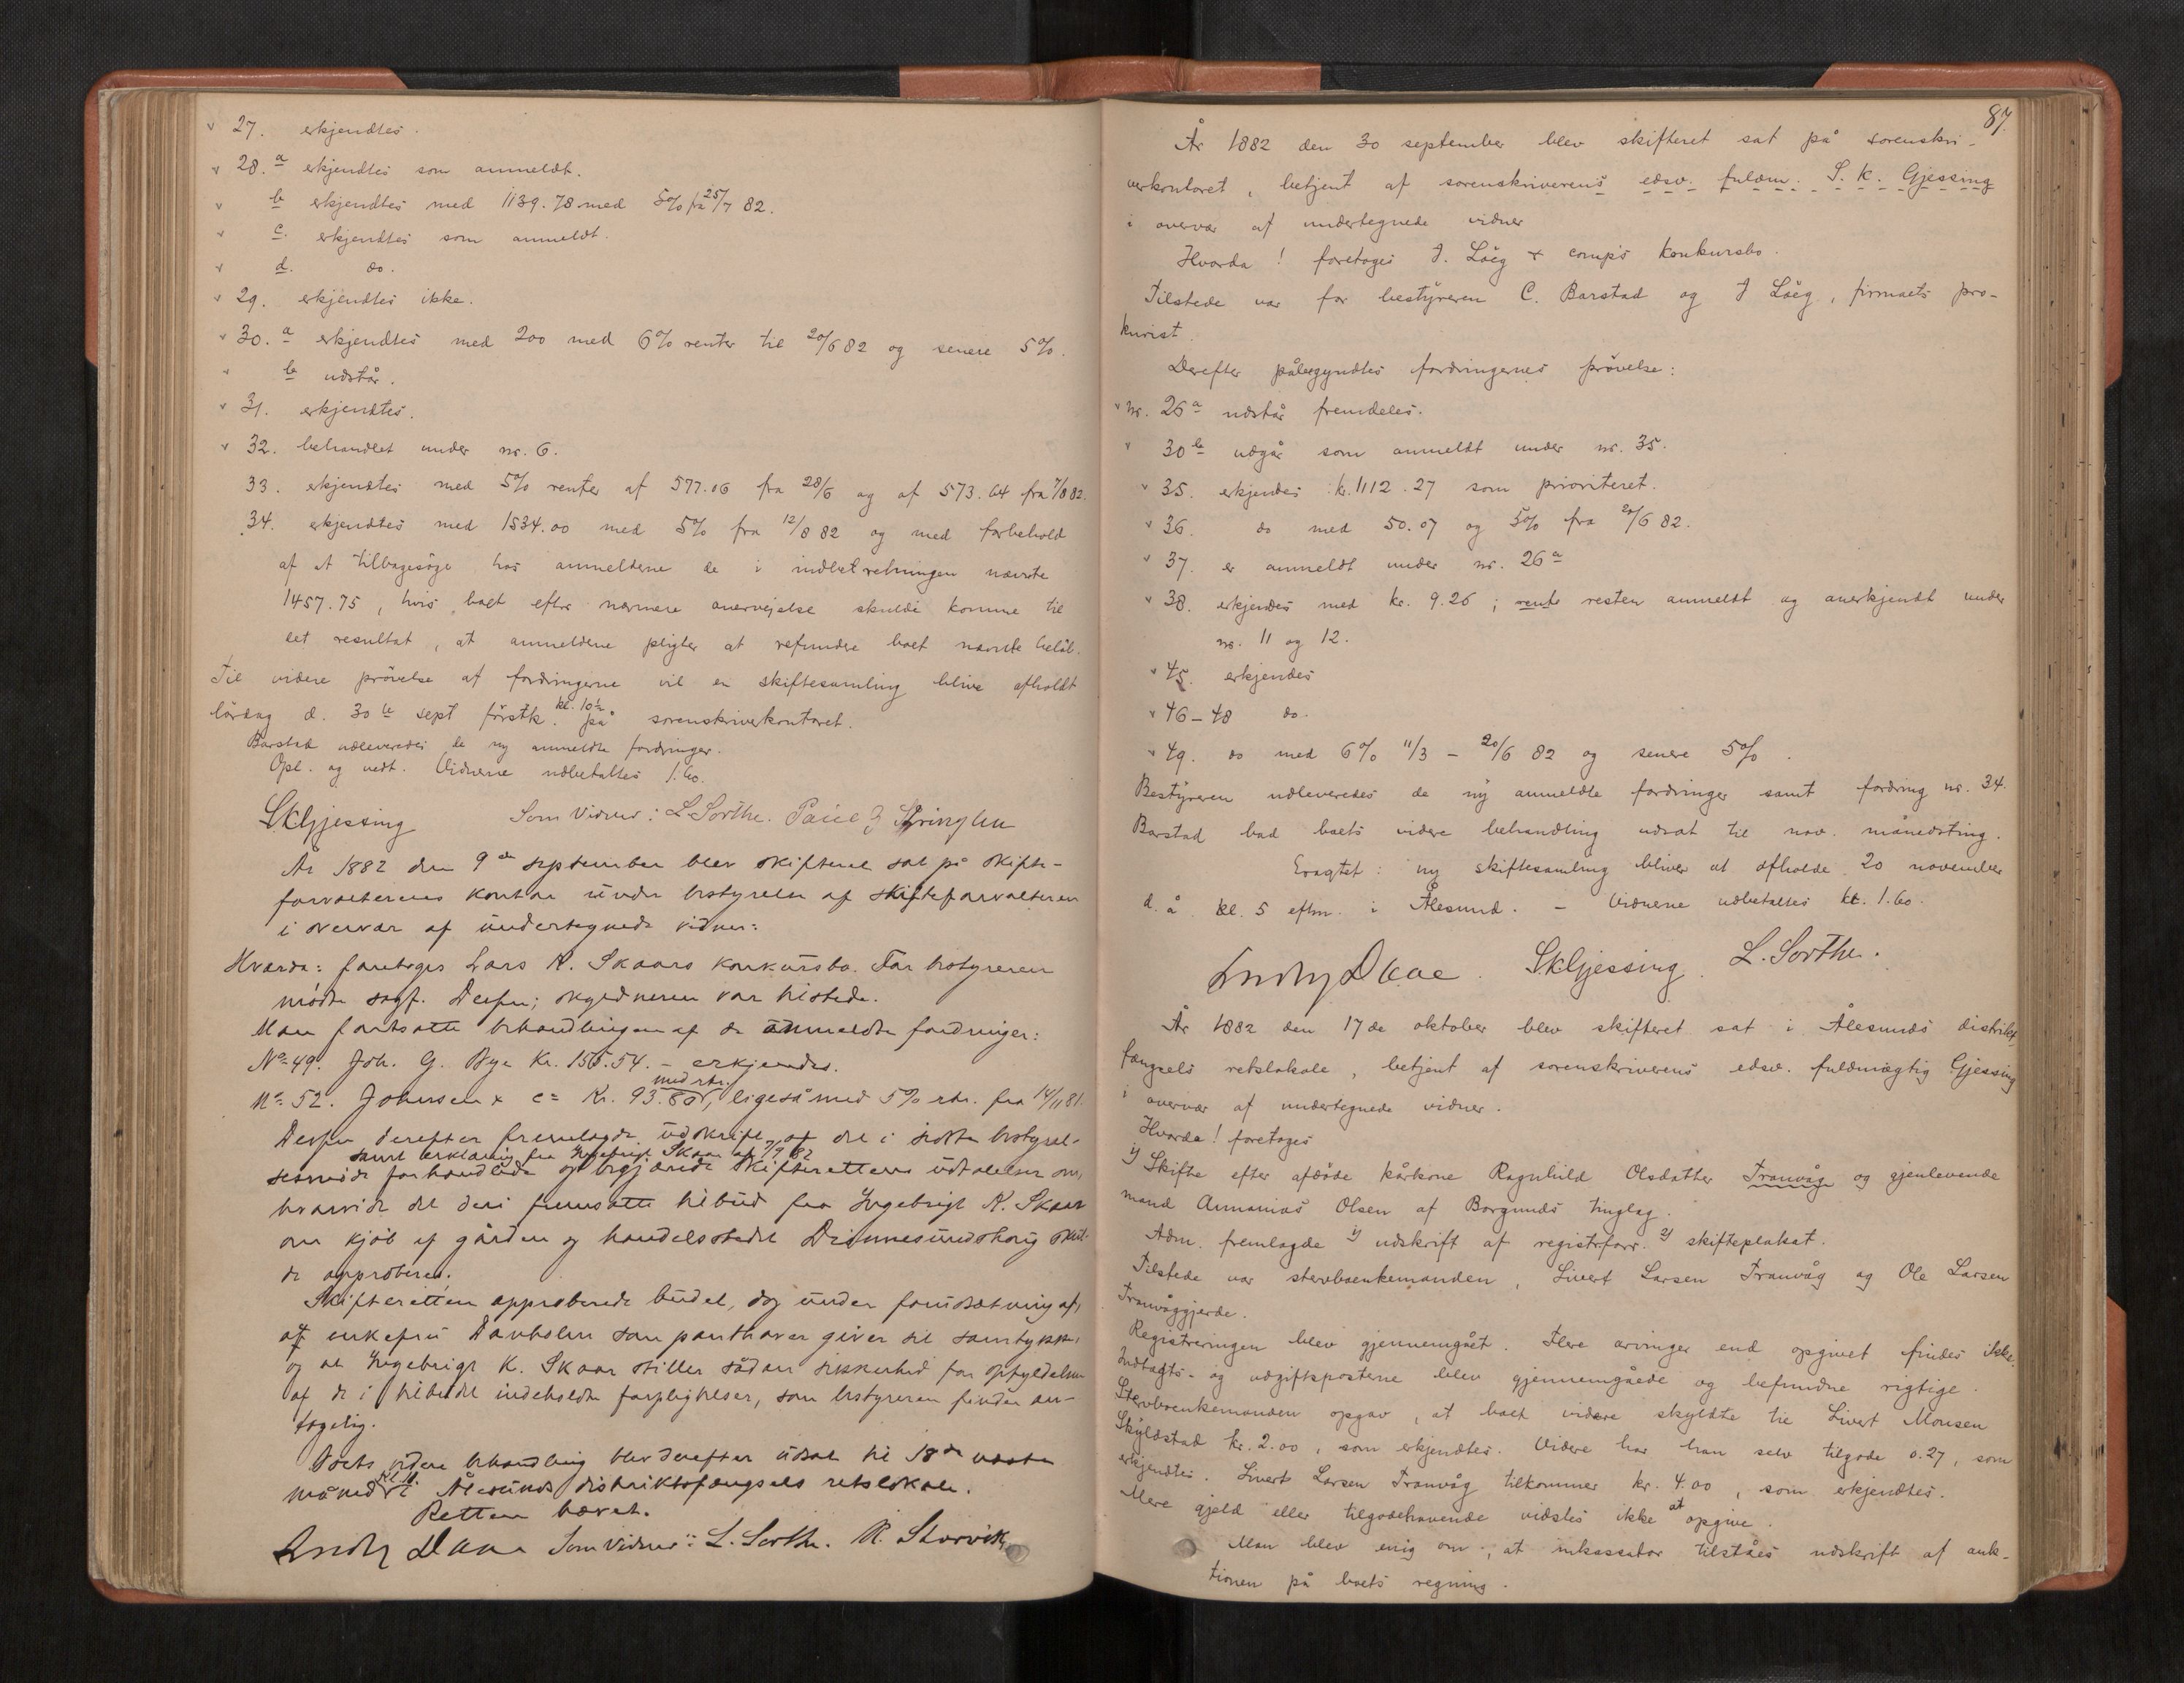 27. erkjendtes.
28.a erkjendtes som anmeldt.
b erkjendtes med 1139.78 med 5% fra 25/7 82.
c. erkjendtes som anmeldt.
d. do.
29. erkjendtes ikke.
30.a erkjendtes med 200 med 6% renter til 20/6 82 og senere 5%.
b udstår.
31. erkjendtes.
32. behandlet under nr. 6.
33. erkjendtes med 5% renter af 577.06 fra 28/6 og af 573.64 fra 7/8 82.
34. erkjendtes med 1534.00 med 5% fra 12/8 82 og med forbehold
af at tilbagesøge hos anmelderne de i indberetningen nævnte
1457.75, hvis boet efter nærmere overvejelse skulde komme til
det resultat, at anmelderne pligter at refundere boet nævnte beløb.
Til videre prövelse af fordringerne vil en skiftesamling blive afholdt
lördag d. 30te sept förstk. kl. 10½ på sorenskriverkontoret.
Barstad udleveredes de ny anmeldte fordringer.
Opl. og vedt. Vidnerne udbetaltes 1.60.
SKGjessing Som Vidner: L Sorthe.
År 1882 den 9de september blev skifteret sat på skifte-
forvalterens kontor under bestyrelse af skifteforvalteren
i overvær af undertegnede vidner:
Hvorda: foretoges Lars K. Skaars konkursbo. For bestyreren
mødte sagf. Devfn; skyldneren var tilstede.
Man fortsatte behandlingen af de anmeldte fordringer:
No 49. Joh. G. Bye Kr. 155.54. - erkjendes.
No 52. Johnsen & Co Kr. 93.80 med rtr., ligeså med 5% rtr. fra 14/11 81.
derefter fremlagde udskrift af det i sidste bestyrel-
samt erklæring fra Ingebrigt Skaar af 7/9 82
sesmöde forhandlede og begjærede skifterettens udtalelse om,
hvorvidt det deri fremsatte tilbud fra Ingebrigt K. Skaar
om kjöb af gården og handelsstedet Drönnesundshaug skul-
de approberes.
Skifteretten approberede budet, dog under forudsætning af,
at enkefru Davholm som panthaver giver sit samtykke,
og at Ingebrigt K. Skaar stiller sådan sikkerhed for opfyldelsen
af de i tilbudet indeholdte forpligtelser, som bestyreren finder an-
tagelig.
Boets videre behandling blev derefter udsat til 18de næste
måned kl. 11. i Ålesunds distriktsfængsels retslokale.
Retten hævet.
Som Vidner: L. Sorthe. K. Storvik
87.
År 1882 den 30 september blev skifteret sat på sorenskri-
verkontoret, betjent af sorenskriverens edsv. fuldm. S. K. Gjessing
i overvær af undertegnede vidner
Hvorda! foretoges J. Låeg & comp's konkursbo.
Tilstede var for bestyreren C. Barstad og J Låeg, firmaets pro-
kurist.
Derefter påbegyndtes fordringernes prövelse:
nr. 26a udstår fremdeles.
30b udgår som anmeldt under nr. 35.
35. erkjendes kr. 1112.27 som prioriteret.
36. do med 50.07 og 5% fra 20/6 82.
37. er anmeldt under nr. 26a
38. erkjendes med kr. 9.26; rente resten anmeldt og anerkjendt under
nr. 11 og 12.
45. erkjendes
46-48 do.
49. do med 6% 11/3 - 20/6 82 og senere 5%.
Bestyreren udleveredes de ny anmeldte fordringer samt fordring nr. 34.
Barstad bad boets videre behandling udsat til nov. månedsting.
Eragtet: ny skiftesamling bliver at afholde 20 november
d. å. kl. 5 eftm. i Ålesund. - Vidnerne udbetaltes kr. 1.60.
SkGjessing. L. Sorthe.
År 1882 den 17de oktober blev skifteret sat i Ålesunds distrikts
fængsels retslokale, betjent af sorenskriverens edsv. fuldmægtig Gjessing
i overvær af undertegnede vidner.
Hvorda! foretoges
1) Skifte efter afdöde kårkone Ragnhild Olsdatter Tranvåg og gjenlevende
mand Annanias Olsen af Borgunds tinglag.
Adm. fremlagde 1) udskrift af registrforr. 2) skifteplakat.
Tilstede var stervboenkemanden, Sivert Larsen Tranvåg og Ole Larsen
Tranvåggjerde.
Registreringen blev gjennemgået. Flere arvinger end opgivet findes ikke.
Indtægts- og udgiftsposterne blev gjennemgåede og befundne rigtige.
Stervboenkemanden opgav, at boet videre skyldte til Sivert Monsen
Skyldstad kr. 2.00, som erkjendtes. Videre har han selv tilgode 0.27, som
erkjendtes. Siverts Larsen Tranvåg tilkommer kr. 4.00, som erkjendtes.
Mere gjeld eller tilgodehavende vidstes ikke at opgive.
Man blev enig om, at inkassator tilståes udskrift af auk-
tionen på boets regning.